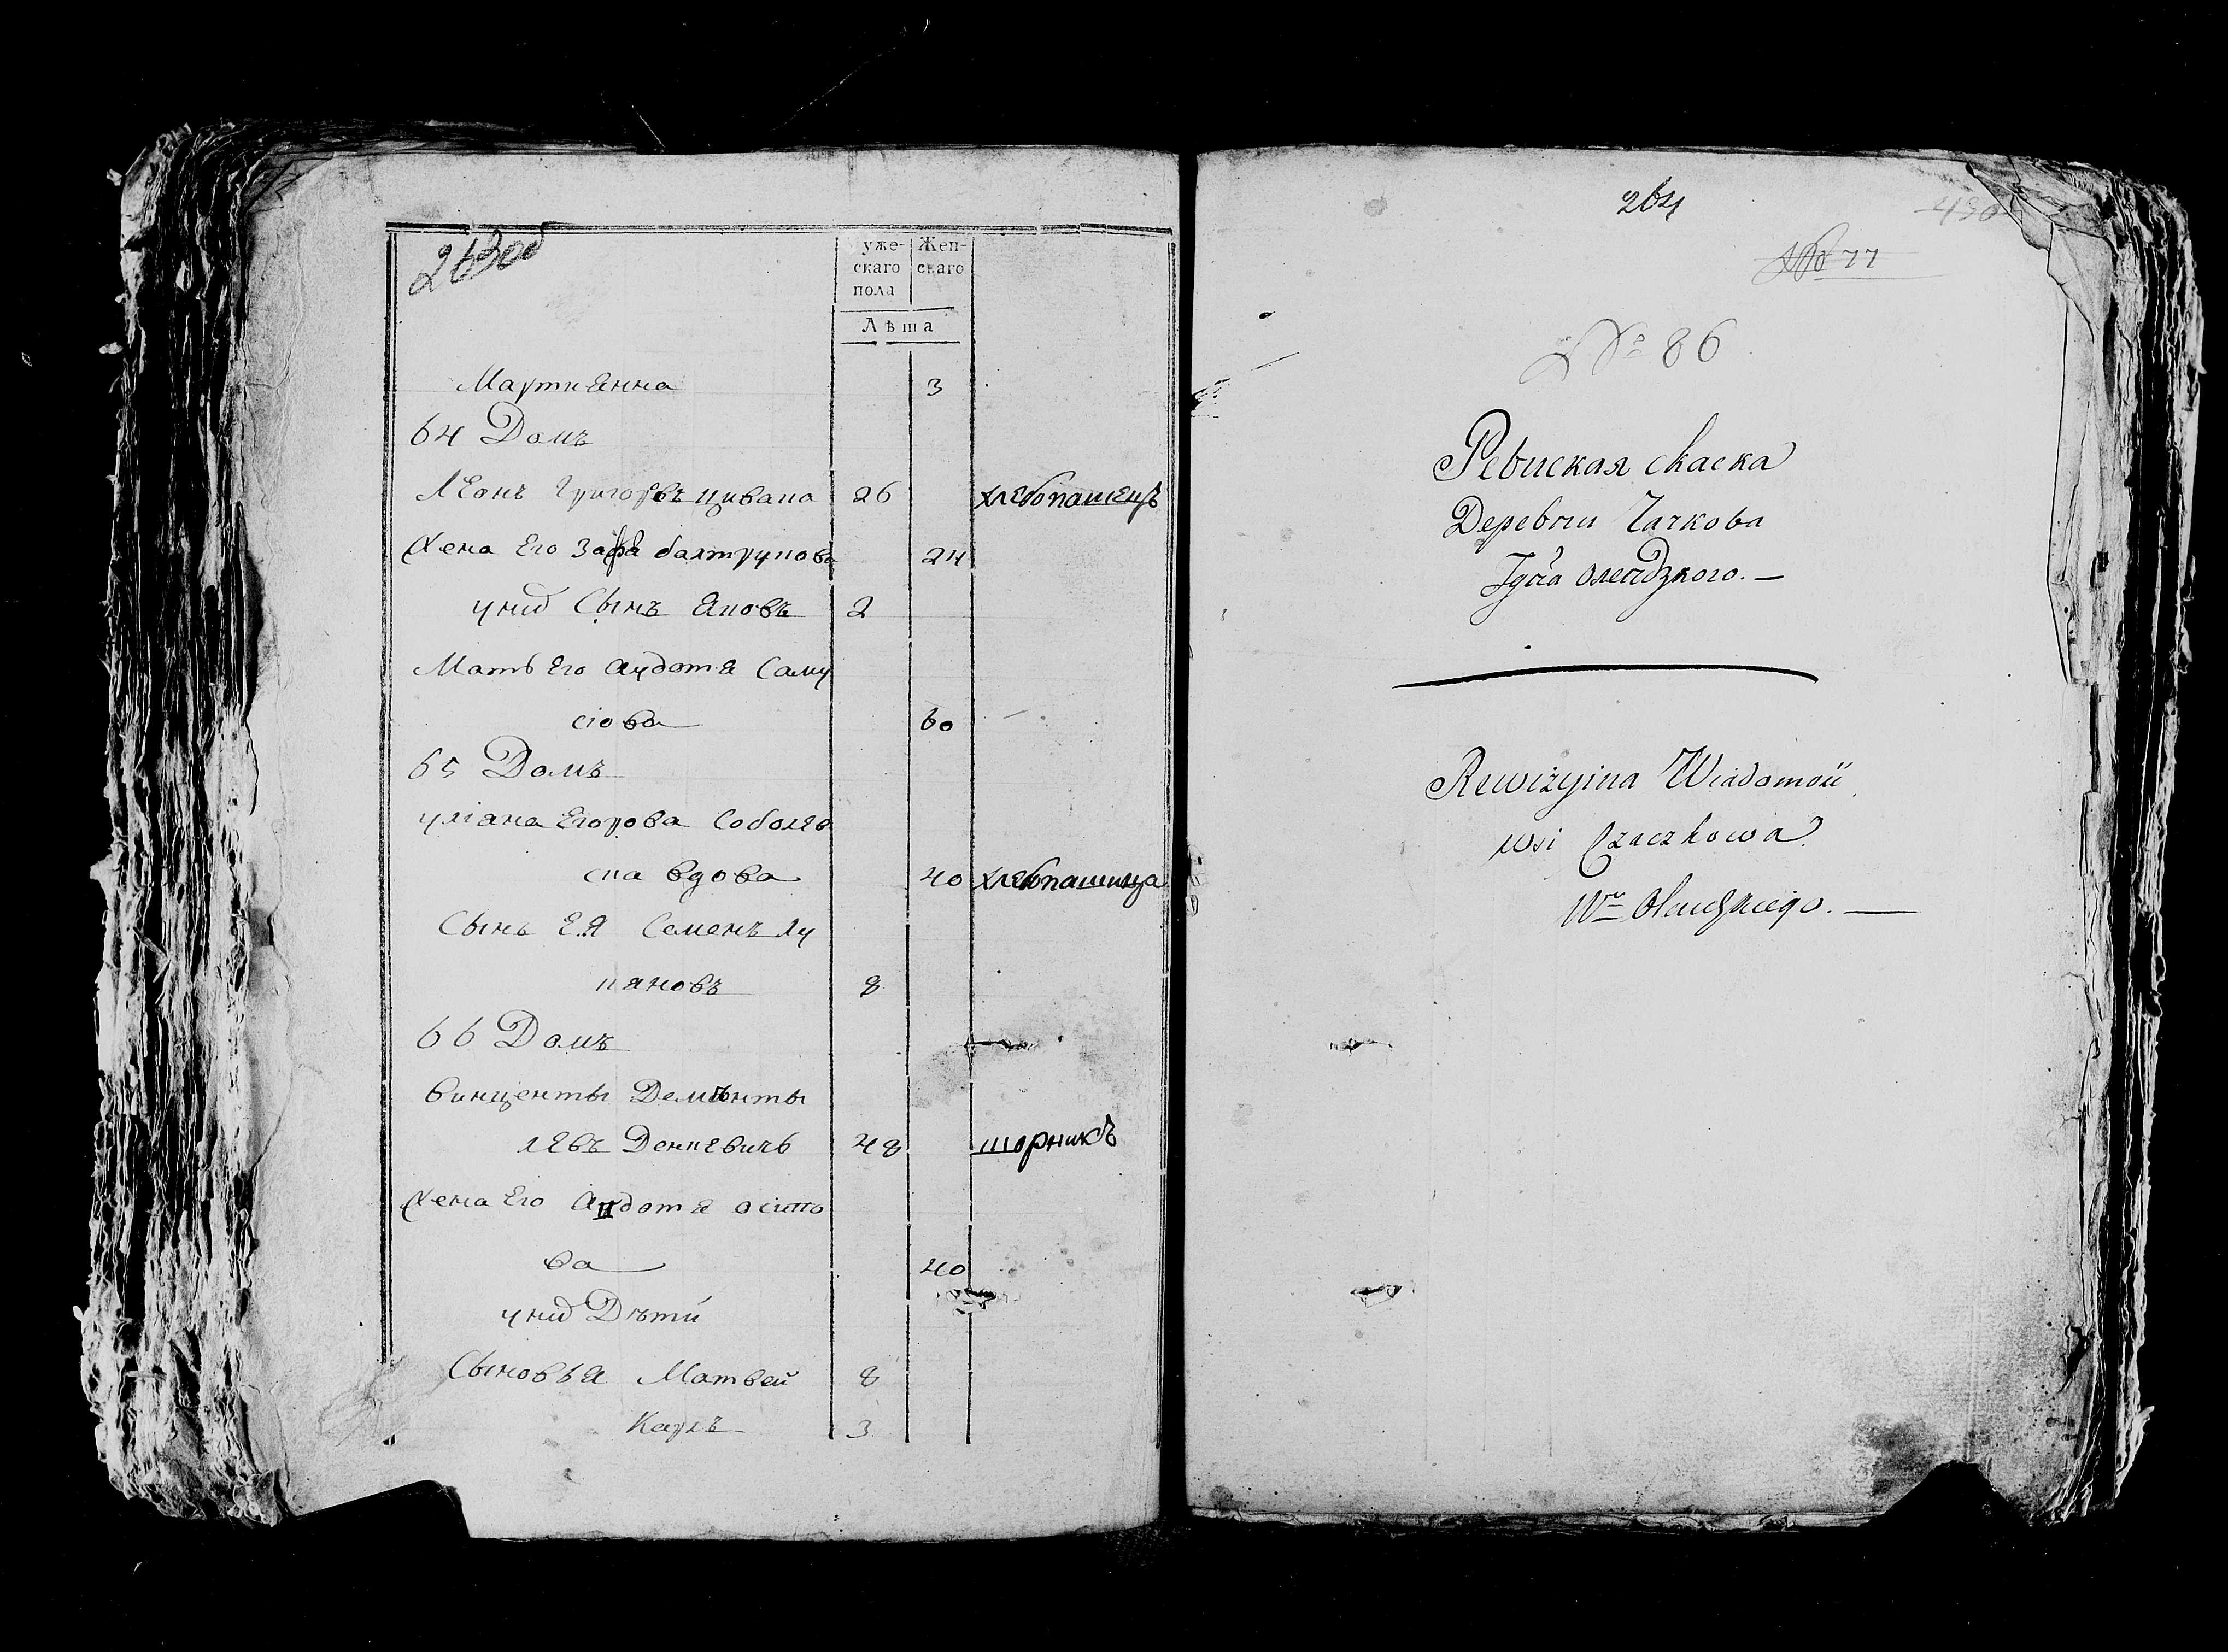 263об
уже- Жен-
скаго скаго
пола
Лѣта
Мартианна 3
64 Домъ
Леонъ Григорьевъ цивана 26 хлебопашецъ
Жена Его Зафа балтрунова 24
унид Сынъ Яповъ 2
Мать Его аудотя Саму
сіова 60
65 Домъ
уліана Егорова Соболев
на вдова 40 хлебопашица
Сынъ ЕЯ Семенъ Лу
пяновъ 8
66 Домъ
Винценты Демѣнты
левъ Денневичь 48 шорникъ
Жена Его Аудотя осипо
ва 40
унид Дѣти
Сыновья Матвей 8
Карлъ 3
264
430
№ 77
№ 86
Ревиская скаска
Деревни Чачкова
Олендзкого. —
Rewizyina Wiadomość
wsi Czaczkowa
Wo Olendzkiego. —